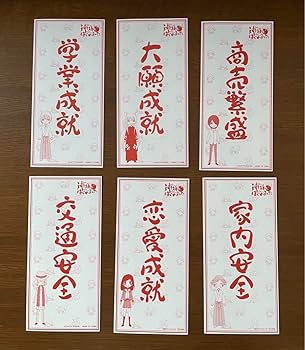 学業成就
大願成就
商売繁盛
交通安全
恋愛成就
家内安全